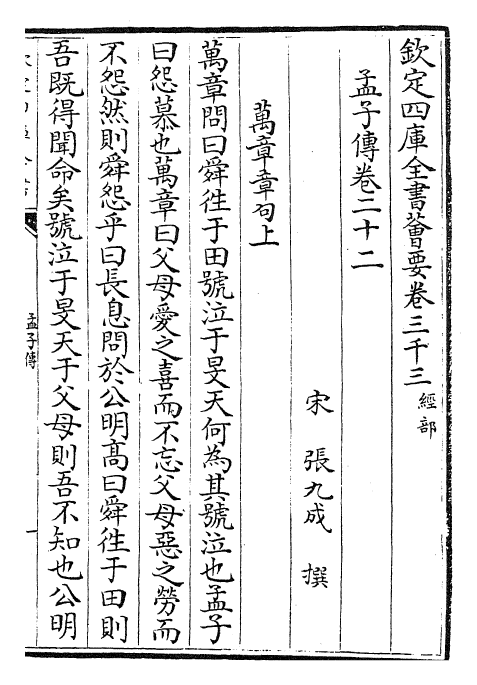 欽定四庫全書薈要卷三千三 經部
孟子傳卷二十二
宋 張九成 撰
萬章章句上
萬章問曰舜徃于田號泣于旻天何為其號泣也孟子
曰怨慕也萬章曰父母愛之喜而不忘父母惡之勞而
不怨然則舜怨乎曰長息問於公明髙曰舜徃于田則
吾既得聞命矣號泣于旻天于父母則吾不知也公明
孟子傳
一